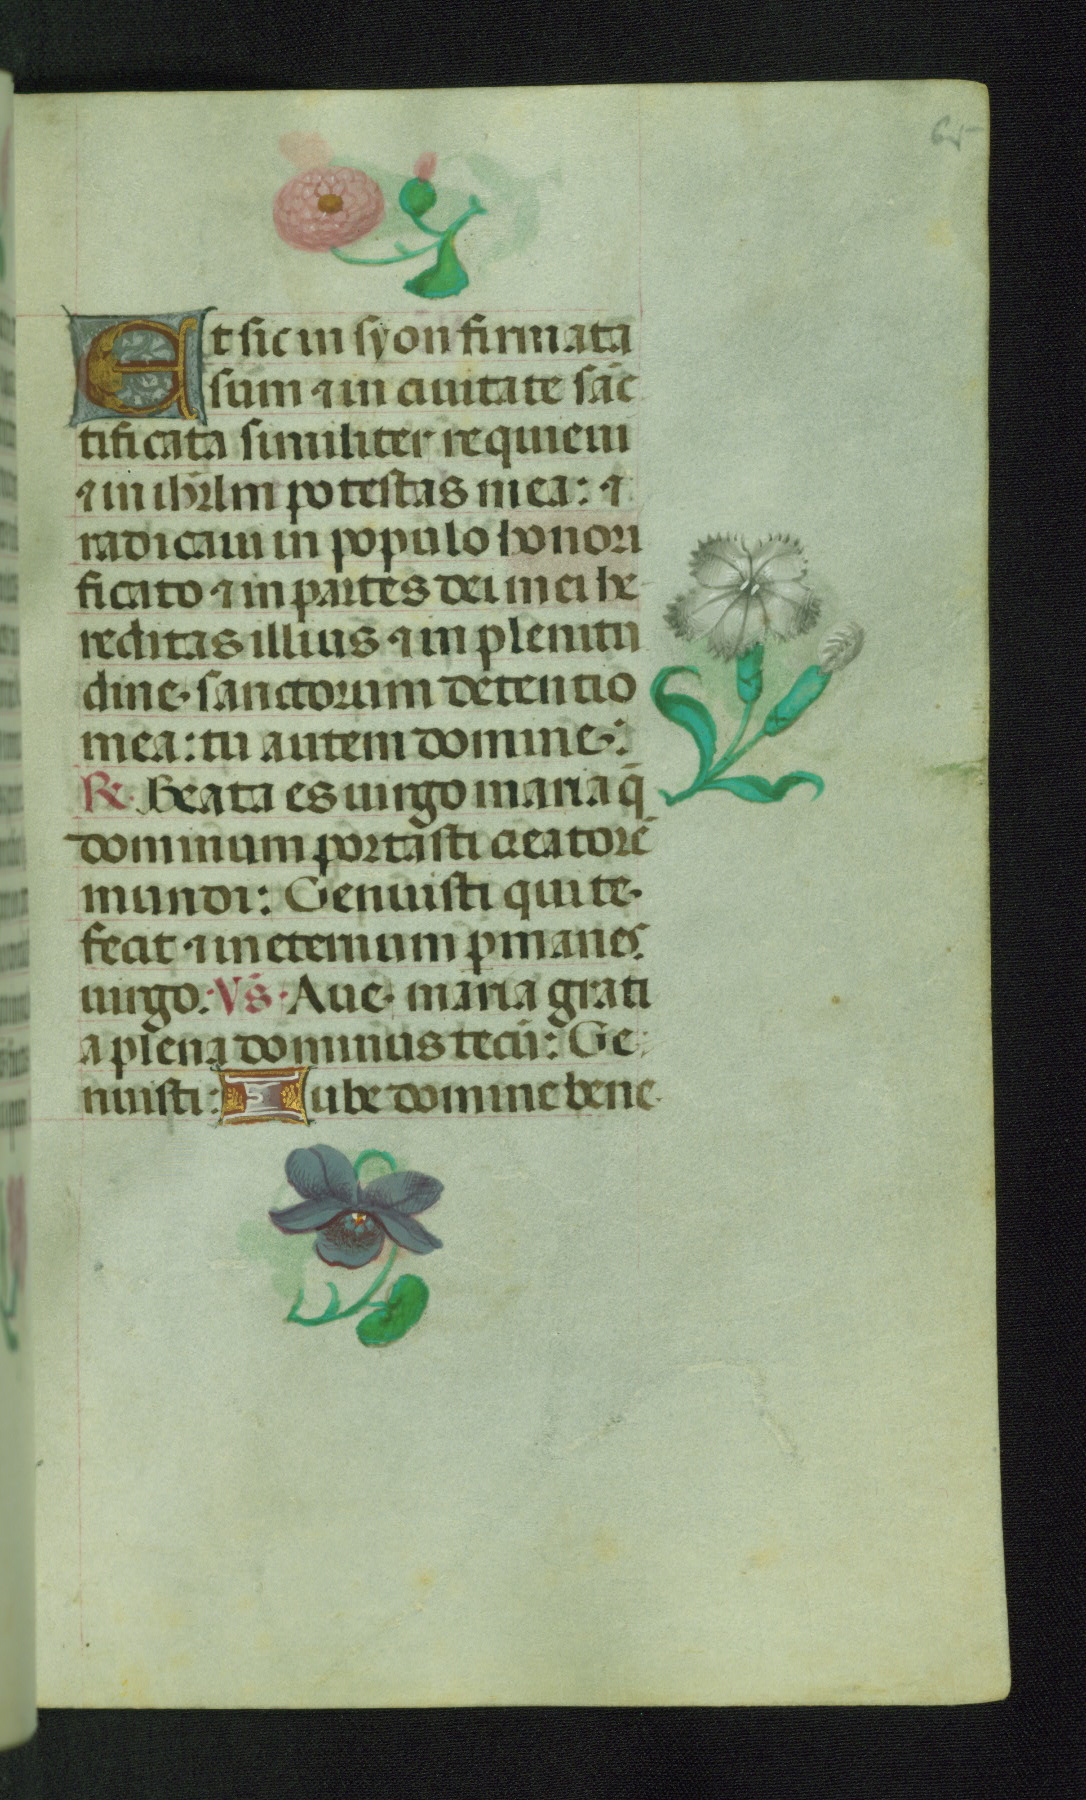 65
Et sic in syon firmata
sum ⁊ in ciuitate sāc
tificata similiter requieui
⁊ in ihrl̄m potestas mea: ⁊
radicaui in populo honori
ficato ⁊ in partes dei mei he
reditas illius ⁊ in plenitu
dine· sanctorum detentio
mea: tu autem domine·:
℟· Beata es uirgo maria q̄
dominum portasti creatorē
mundi: Genuisti qui te·
fecit ⁊ in eternum ꝑmanes
uirgo: Vs̄· Aue· maria grati
a plena dominus tecū: Ge
nuisti: Iube domine bene